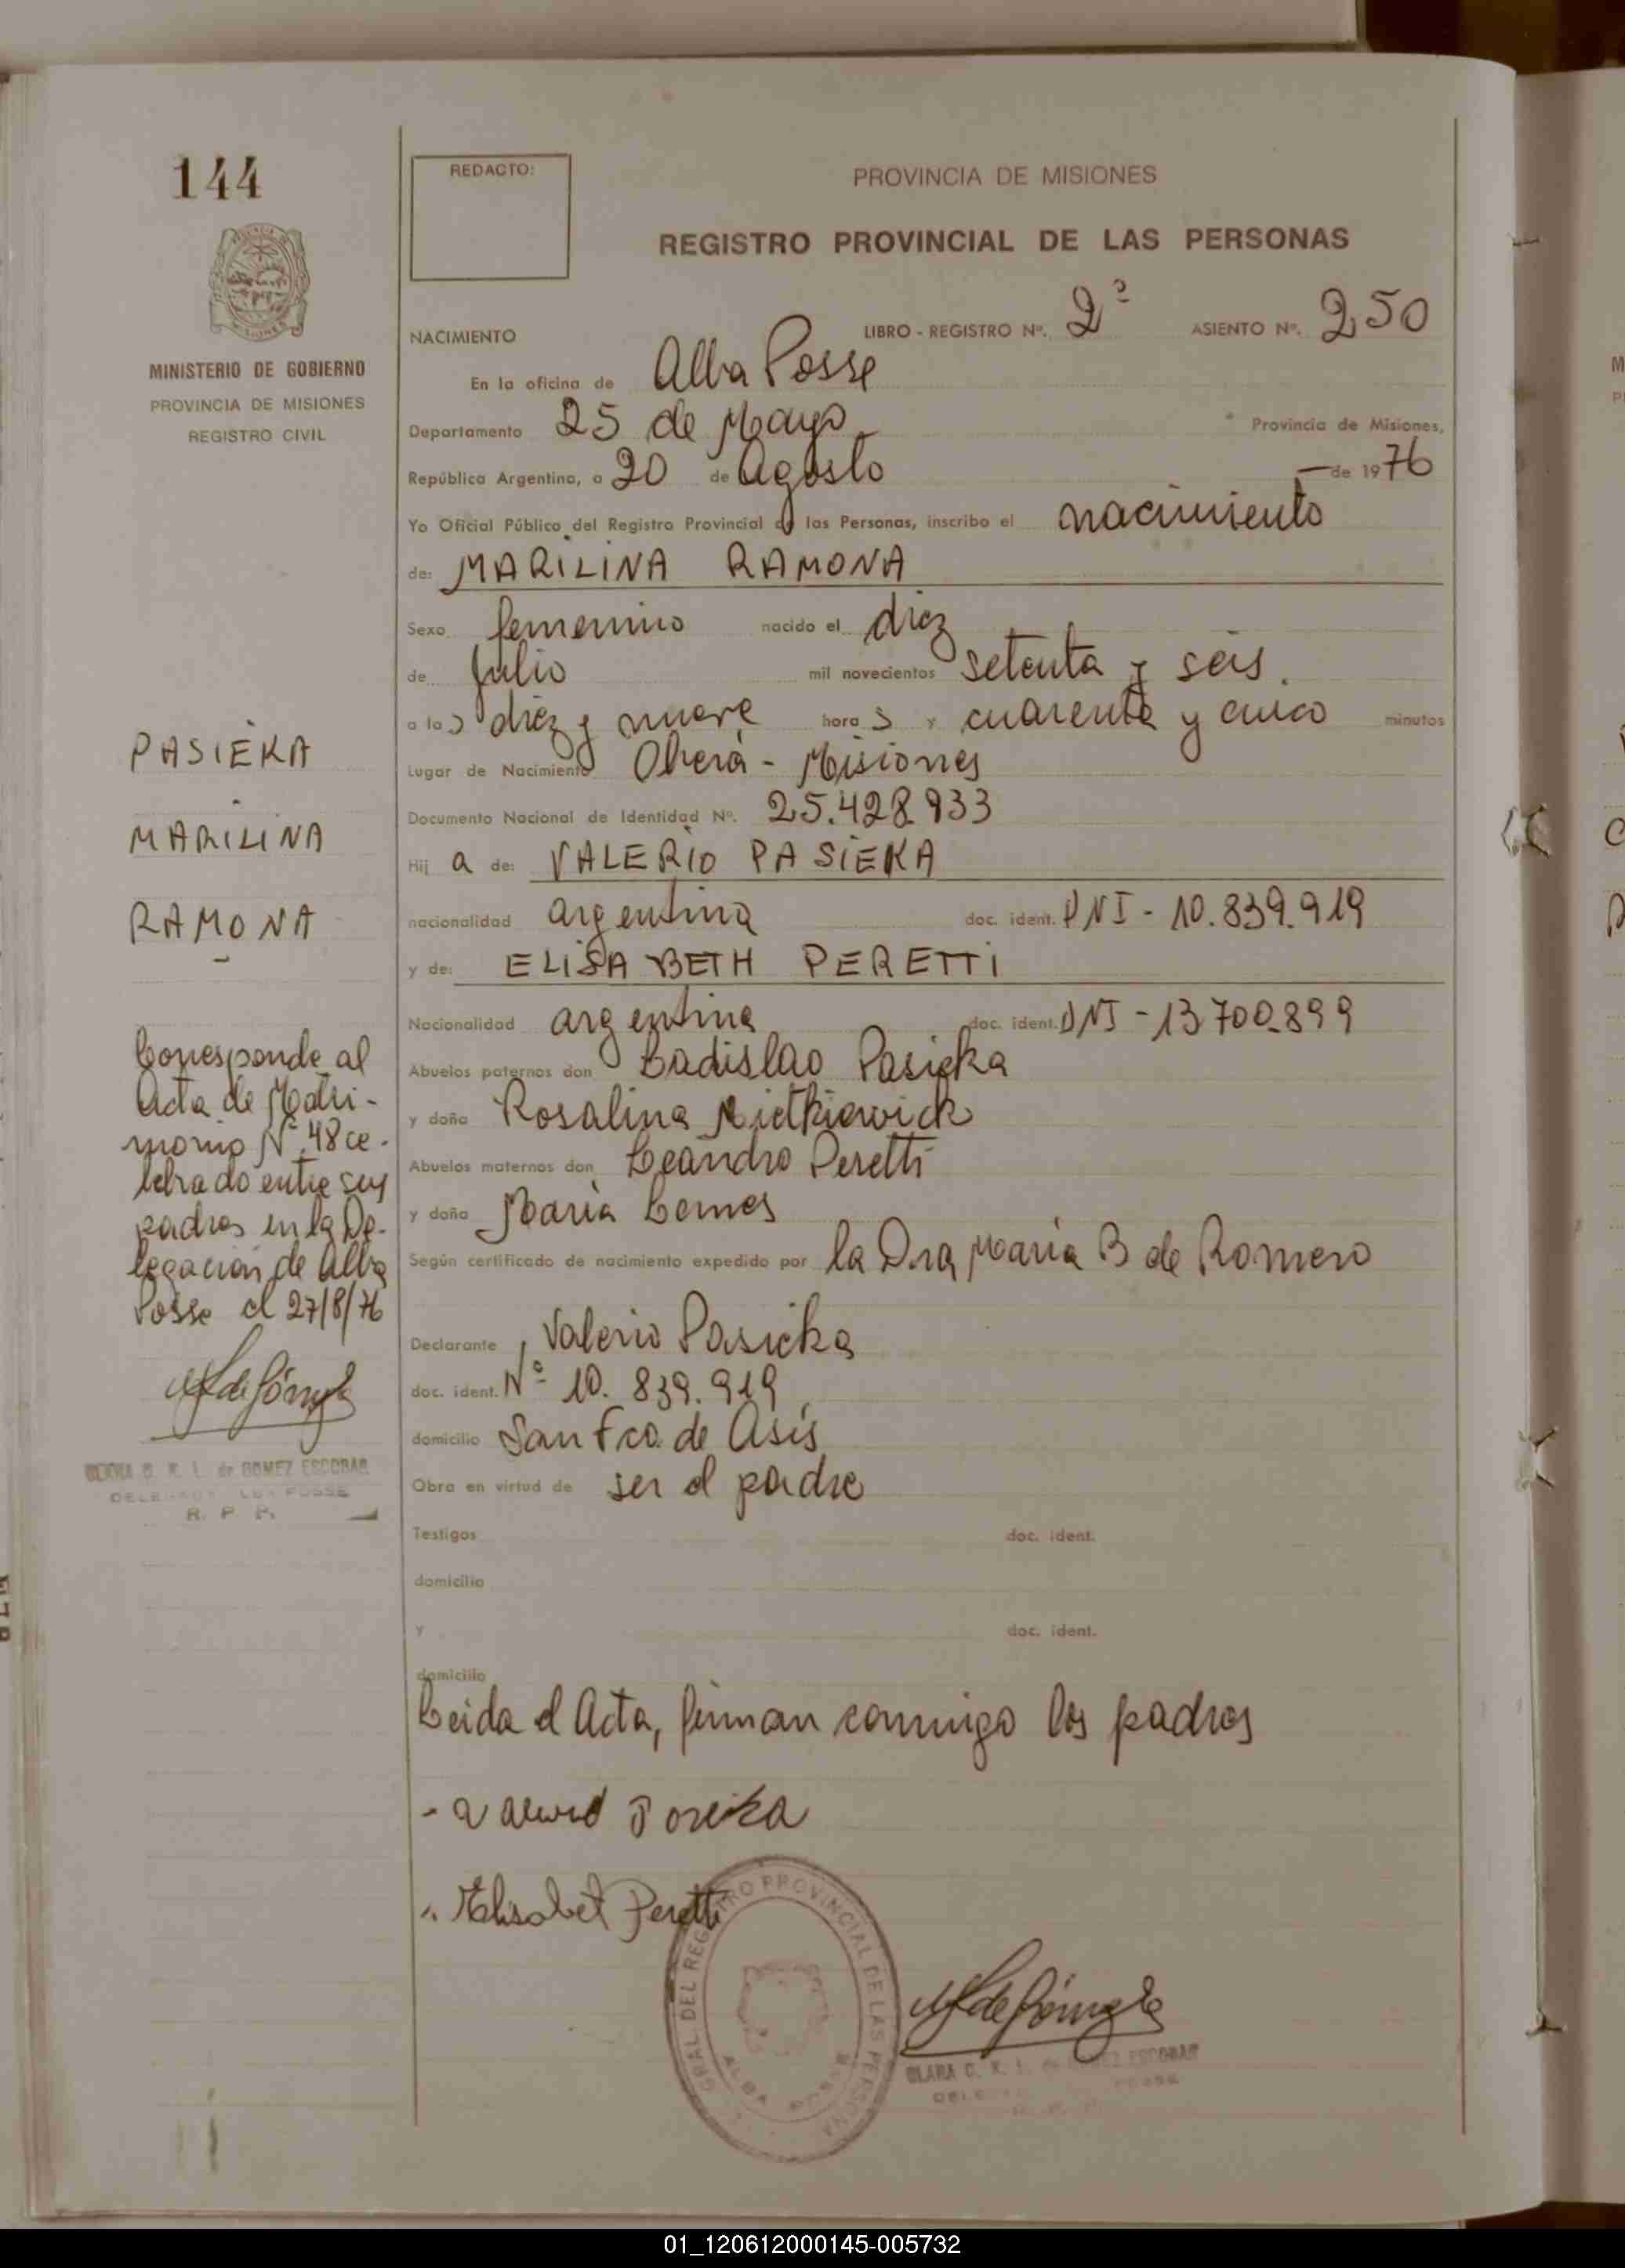 144
REDACTO:
PROVINCIA DE MISIONES
REGISTRO PROVINCIAL DE LAS PERSONAS
MINISTERIO DE GOBIERNO
PROVINCIA DE MISIONES
REGISTRO CIVIL
NACIMIENTO LIBRO - REGISTRO Nº. 2º ASIENTO Nº. 250
En la oficina de Alba Posse
Departamento 25 de Mayo Provincia de Misiones,
República Argentina, a 20 de Agosto — de 1976
Yo Oficial Público del Registro Provincial de las Personas, inscribo el nacimiento
de: MARILINA RAMONA
Sexo femenino nacido el diez
de Julio mil novecientos setenta y seis.
a las diez y nueve horas y cuarenta y cinco minutos
Lugar de Nacimiento Oberá - Misiones
Documento Nacional de Identidad Nº. 25.428933
Hij a de: VALERIO PASIEKA
nacionalidad argentina doc. ident. DNI - 10.839.919
y de: ELISABETH PERETTI
Nacionalidad argentina doc. ident. DNI - 13700.899
Abuelos paternos don Ladislao Pasieka
y doña Rosalina
Abuelos maternos don Leandro Peretti
y doña Maria Lemes
Según certificado de nacimiento expedido por la Dra Maria B de Romero
Declarante, Valerio Pasieka
doc. ident. Nº 10. 839.919
domicilio San Fco. de Asís
Obra en virtud de ser el padre
Testigos doc. ident.
domicilio
y doc. ident.
domicilio
Leida el Acta, firman conmigo los padres
Elisabet Peretti
PASIEKA
MARILINA
RAMONA
Corresponde al
Acta de Matri-
monio Nº 48 ce-
lebrado entre sus
padres en la De-
legación de Alba
Posse el 27/8/76
de GOMEZ ESCOBAR
R. P. P.
GRAL DEL REGISTRO PROVINCIAL DE LAS PERSONAS
ALBA POSSE
CLARA C. K. L. de GOMEZ ESCOBAR
01_120612000145-005732